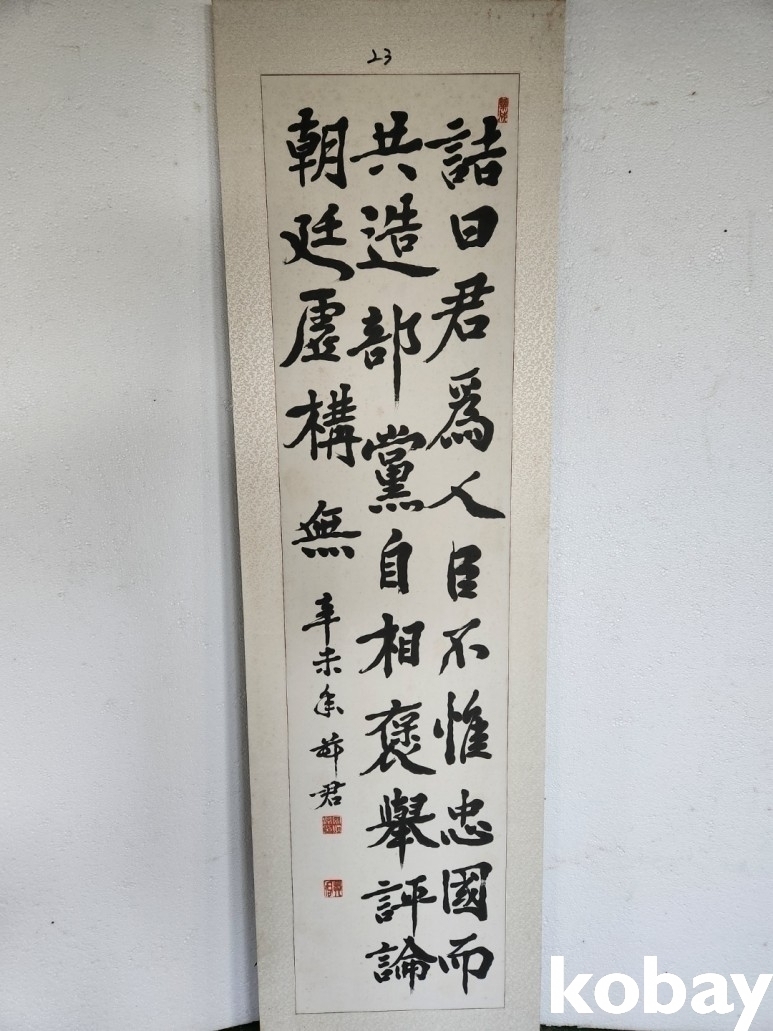 23
詰曰君爲人臣不惟忠國而
共造部黨自相褒舉評論
朝廷虛構無
辛未年 君
kobay